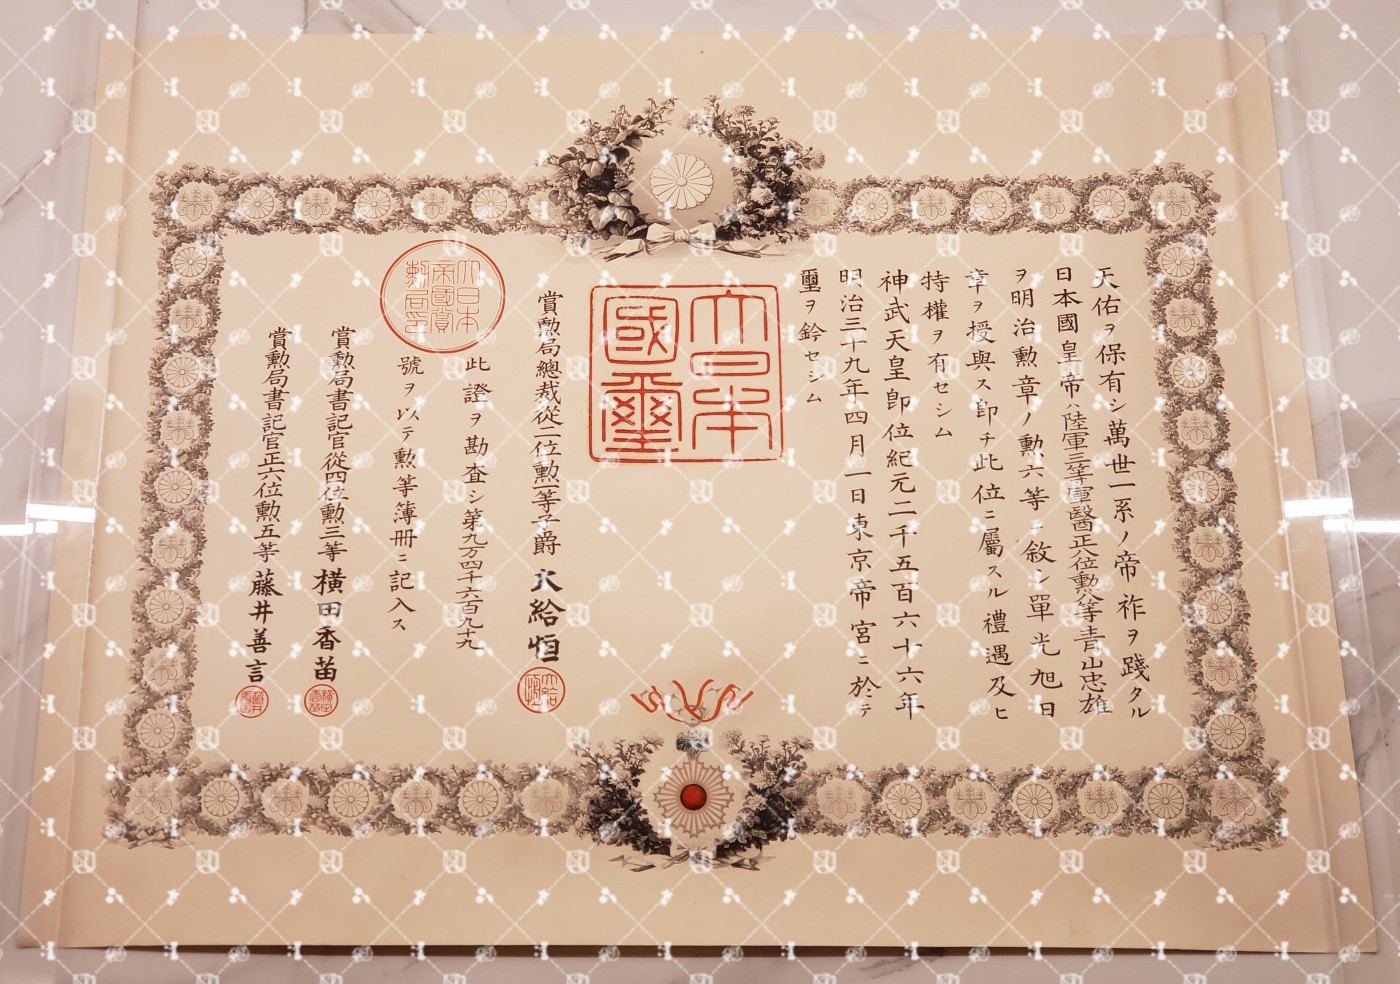 天佑ヲ保有シ萬世一系ノ帝祚ヲ踐タル
日本國皇帝ハ陸軍三等軍醫正八位勲八等青山忠雄
ヲ明治勲章ノ勲六等ニ敘シ單光旭日
章ヲ授與ス即チ此位ニ屬スル禮遇及ヒ
特權ヲ有セシム
神武天皇即位紀元二千五百六十六年
明治三十九年四月一日東京帝宮ニ於テ
璽ヲ鈐セシム
大日本
國璽
賞勲局總裁從二位勲一等子爵 大給恒
大日本
帝國賞
勲局印
此證ヲ勘査シ第九万四千六百九十九
號ヲ以テ勲等簿冊ニ記入ス
賞勲局書記官從四位勲三等 横田香苗
賞勲局書記官正六位勲五等 藤井善言